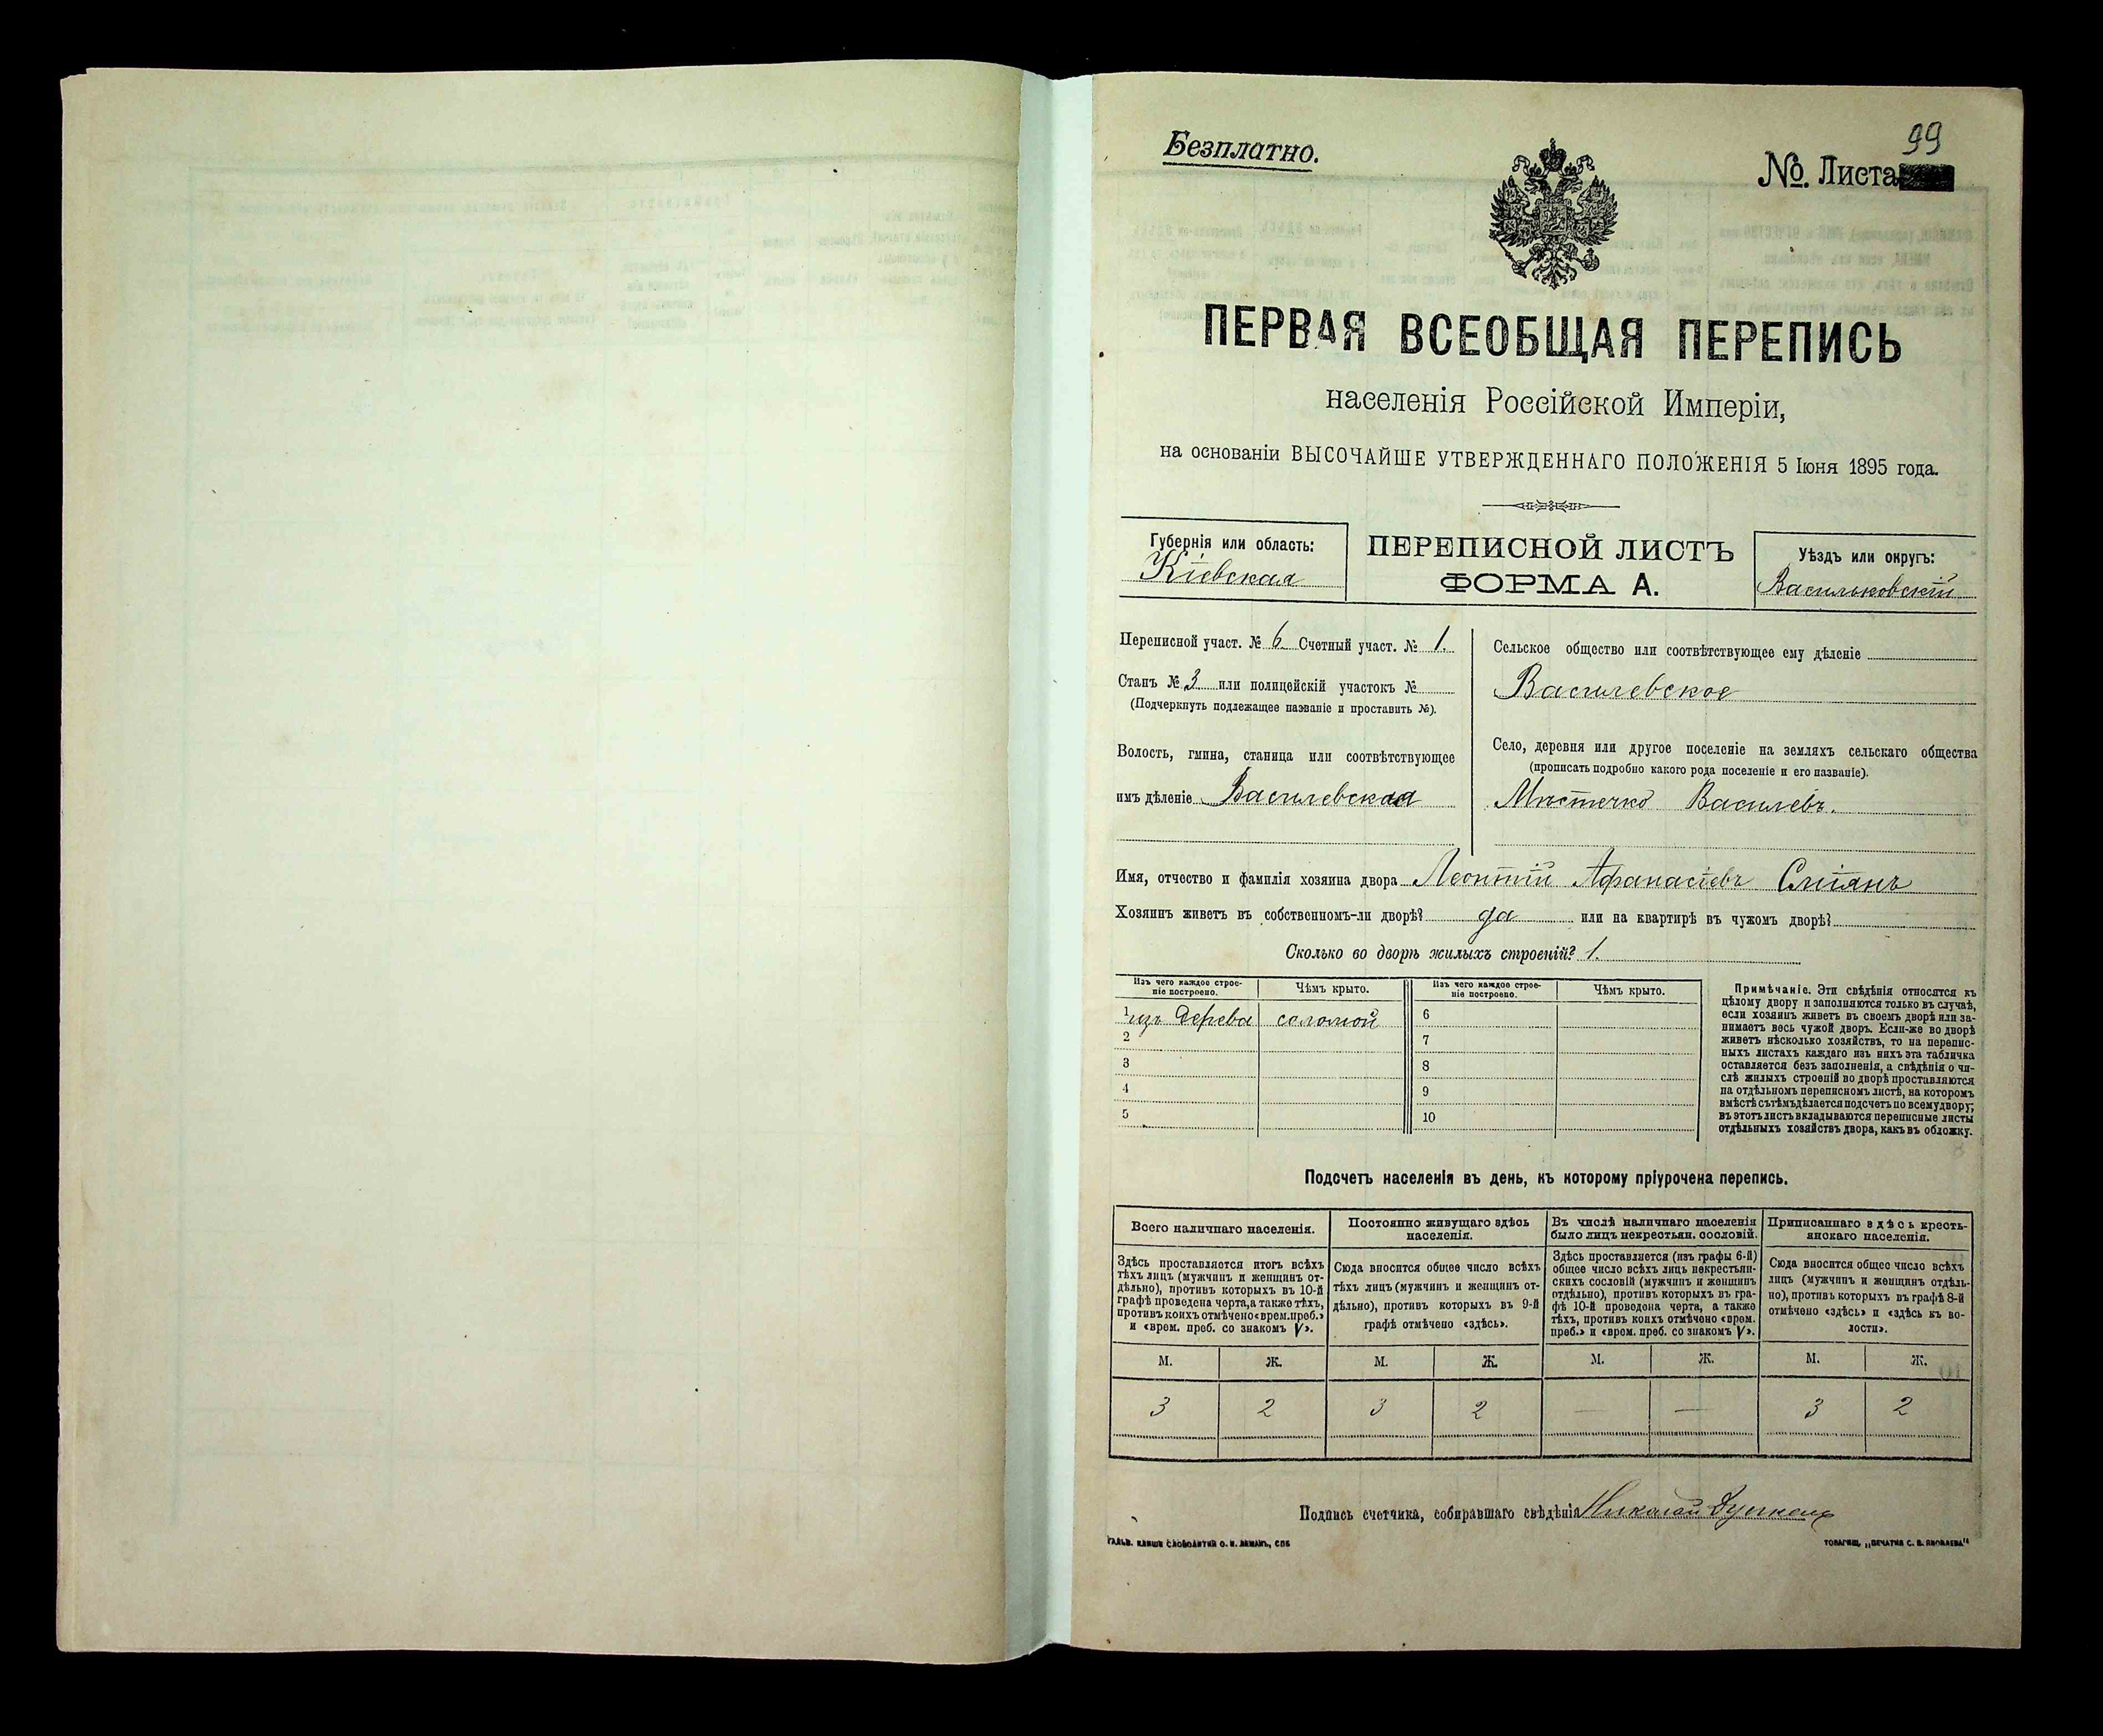 99
Безплатно.
№. Листа
ПЕРВАЯ ВСЕОБЩАЯ ПЕРЕПИСЬ
населенія Россійской Имперіи,
на основаніи ВЫСОЧАЙШЕ УТВЕРЖДЕННАГО ПОЛОЖЕНІЯ 5 Іюня 1895 года.
Губернія или область:
Кіевская
ПЕРЕПИСНОЙ ЛИСТЪ
ФОРМА А.
Уѣздъ или округъ:
Васильковскій
Переписной участ. № 6 Счетный участ. № 1.
Станъ № 3 или полицейскій участокъ №
(Подчеркнуть подлежащее названіе и проставить №).
Волость, гмина, станица или соотвѣтствующее
имъ дѣленіе Василевская
Сельское общество или соотвѣтствующее ему дѣленіе
Василевское
Село, деревня или другое поселеніе на земляхъ сельскаго общества
(прописать подробно какого рода поселеніе и его названіе).
Мѣстечко Василевъ.
Имя, отчество и фамилія хозяина двора Леонтій Афанасіевъ Сміянъ
Хозяинъ живетъ въ собственномъ-ли дворѣ? да или на квартирѣ въ чужомъ дворѣ?
Сколько во дворѣ жилыхъ строеній? 1.
Изъ чего каждое строе-
ніе построено.
Чѣмъ крыто.
Изъ чего каждое строе-
ніе построено.
Чѣмъ крыто.
1 изъ дерева соломой 6
2 7
3 8
4 9
5 10
Примѣчаніе. Эти свѣдѣнія относятся къ
цѣлому двору и заполняются только въ случаѣ,
если хозяинъ живетъ въ своемъ дворѣ или за-
нимаетъ весь чужой дворъ. Если-же во дворѣ
живетъ нѣсколько хозяйствъ, то на перепис-
ныхъ листахъ каждаго изъ нихъ эта табличка
оставляется безъ заполненія, а свѣдѣнія о чи-
слѣ жилыхъ строеній во дворѣ проставляются
на отдѣльномъ переписномъ листѣ, на которомъ
вмѣстѣ съ тѣмъ дѣлается подсчетъ по всему двору;
въ этотъ листъ вкладываются переписные листы
отдѣльныхъ хозяйствъ двора, какъ въ обложку.
Подсчетъ населенія въ день, къ которому пріурочена перепись.
Всего наличнаго населенія.
Здѣсь проставляется итогъ всѣхъ
тѣхъ лицъ (мужчинъ и женщинъ от-
дѣльно), противъ которыхъ въ 10-й
графѣ проведена черта, а также тѣхъ,
противъ коихъ отмѣчено «врем. преб.»
и «врем. преб. со знакомъ V».
Постоянно живущаго здѣсь
населенія.
Сюда вносится общее число всѣхъ
тѣхъ лицъ (мужчинъ и женщинъ от-
дѣльно), противъ которыхъ въ 9-й
графѣ отмѣчено «здѣсь».
Въ числѣ наличнаго населенія
было лицъ некрестьян. сословій.
Здѣсь проставляется (изъ графы 6-й)
общее число всѣхъ лицъ некрестьян-
скихъ сословій (мужчинъ и женщинъ
отдѣльно), противъ которыхъ въ гра-
фѣ 10-й проведена черта, а также
тѣхъ, противъ коихъ отмѣчено «врем.
преб.» и «врем. преб. со знакомъ V».
Приписаннаго здѣсь кресть-
янскаго населенія.
Сюда вносится общее число всѣхъ
лицъ (мужчинъ и женщинъ отдѣль-
но), противъ которыхъ въ графѣ 8-й
отмѣчено «здѣсь» и «здѣсь къ во-
лости».
М. Ж. М. Ж. М. Ж. М. Ж.
3 2 3 2 — — 3 2
Подпись счетчика, собиравшаго свѣдѣнія Николай
ГАЛЬВ. КЛИШЕ СЛОВОЛИТНИ О. И. ЛЕМАНЪ, СПБ
ТОВАРИЩ. „ПЕЧАТНЯ С. П. ЯКОВЛЕВА"